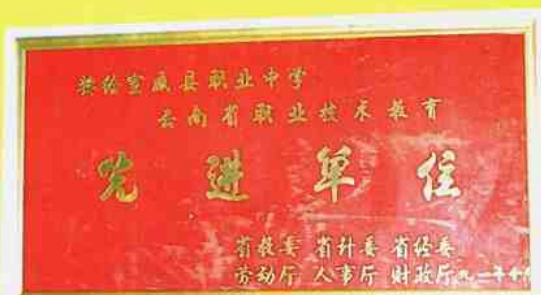 授给宣威县职业中学
云南省职业技术教育
先进单位
省教委 省计委 省经委
劳动厅 人事厅 财政厅 九一年十